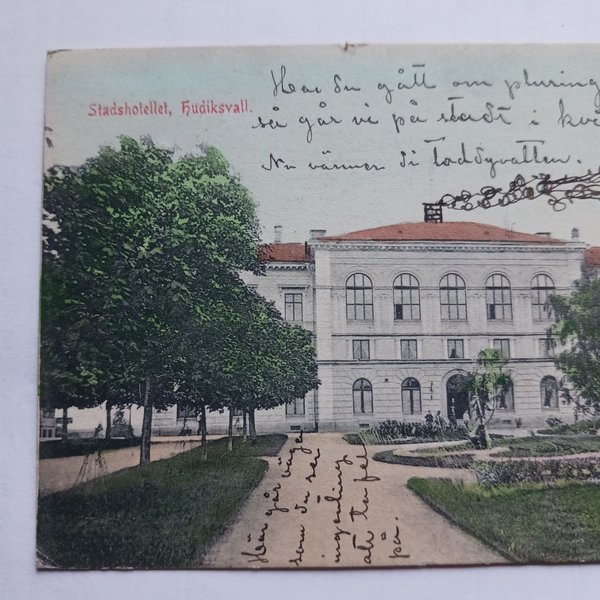 Stadshotellet, Hudiksvall.
Har du gått om pluring
så går vi på stadt i kvä
Nu värmer di toddyvatten.
Här går vägen
som du ser
ingenting
att ta fel
på.